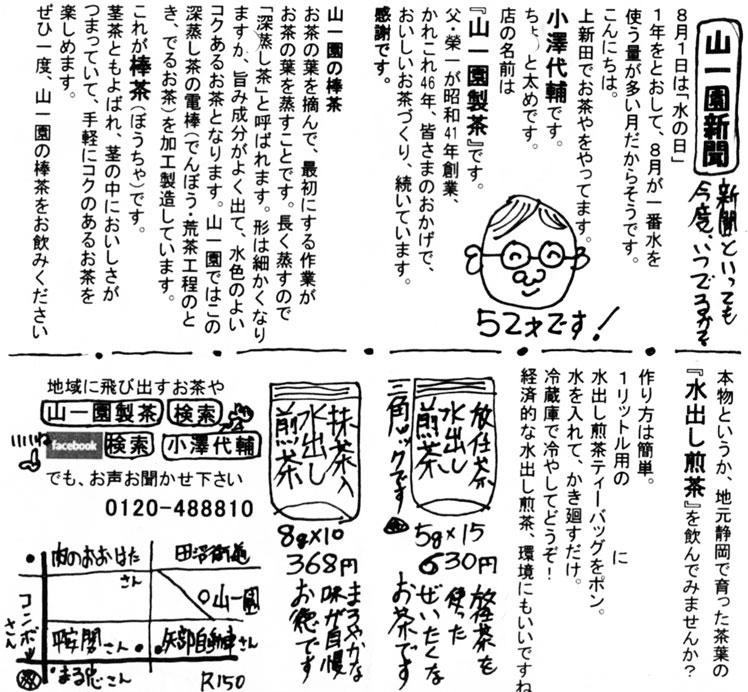 山一園新聞
新聞といっても
今度、いつでるかな
8月1日は「水の日」
1年をとおして、8月が一番水を
使う量が多い月だからそうです。
こんにちは。
上新田でお茶やをやってます。
小澤代輔です。
ちょっと太めです。
店の名前は
『山一園製茶』です。
父・榮一が昭和41年創業、
かれこれ46年、皆さまのおかげで、
おいしいお茶づくり、続いています。
感謝です。
52才です!
山一園の棒茶
お茶の葉を摘んで、最初にする作業が
お茶の葉を蒸すことです。長く蒸すので
「深蒸し茶」と呼ばれます。形は細かくなり
ますが、旨み成分がよく出て、水色のよい
コクあるお茶となります。山一園ではこの
深蒸し茶の電棒(でんぼう・荒茶工程のと
き、でるお茶)を加工製造しています。
これが棒茶(ぼうちゃ)です。
茎茶ともよばれ、茎の中においしさが
つまっていて、手軽にコクのあるお茶を
楽しめます。
ぜひ一度、山一園の棒茶をお飲みください
本物というか、地元静岡で育った茶葉の
『水出し煎茶』を飲んでみませんか?
作り方は簡単。
1リットル用の に
水出し煎茶ティーバッグをポン。
水を入れて、かき廻すだけ。
冷蔵庫で冷やしてどうぞ!
経済的な水出し煎茶、環境にもいいですね
放任茶
水出し
煎茶
三角パックです
5g×15
630円
放任茶を
使った
ぜいたくな
お茶です
抹茶入
水出し
煎茶
8g×10
368円
まろやかな
味が自慢
お徳です
地域に飛び出すお茶や
山一園製茶 検索
いいね facebook 検索 小澤代輔
でも、お声お聞かせ下さい
0120-488810
肉のおおはた
さん
田沼街道
山一園
コンボッ
さん
さん
矢部自動車さん
さん
R150